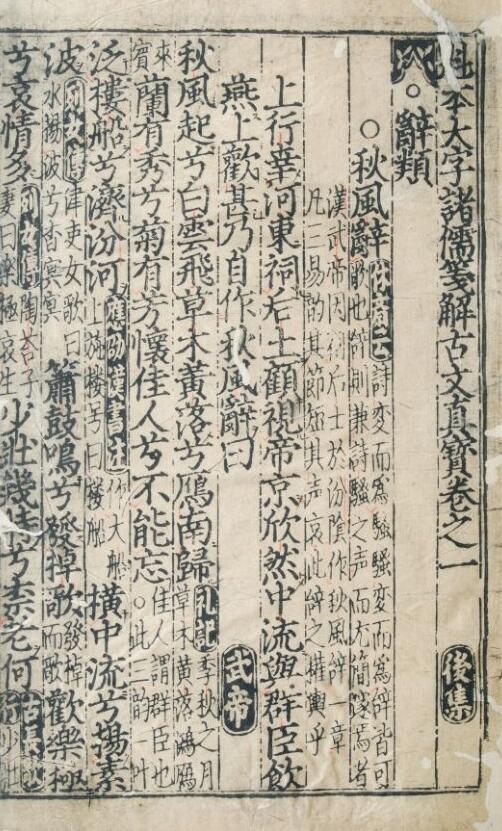 魁本大字諸儒箋解古文真寶卷之一 後集
辭類
秋風辭 詩変而為騷騷変而為辞皆可歌也辞則兼詩騷之声而尤簡邃焉者
漢武帝因祠后土於汾陰作秋風辞一章凡三易韵其節短其声哀此辞之権輿乎 武帝
上行幸河東祠后土顧視帝京欣然中流與群臣飲
燕上歡甚乃自作秋風辭曰
秋風起兮白雲飛草木黃落兮鴈南歸 礼記季秋之月草木黄落鴻鴈來賓
蘭有秀兮菊有芳懷佳人兮不能忘 佳人謂群臣也此三韵一叶
泛樓船兮濟汾河 應劭漢書注作大船上施楼号曰楼船 橫中流兮揚素
波 列女傳津吏女歌曰水揚波兮杳冥冥 簫鼓鳴兮發棹歌 發棹而歌 歡樂極
兮哀情多 列女傳陶荅子妻曰樂極哀生 少壯幾時兮柰老何